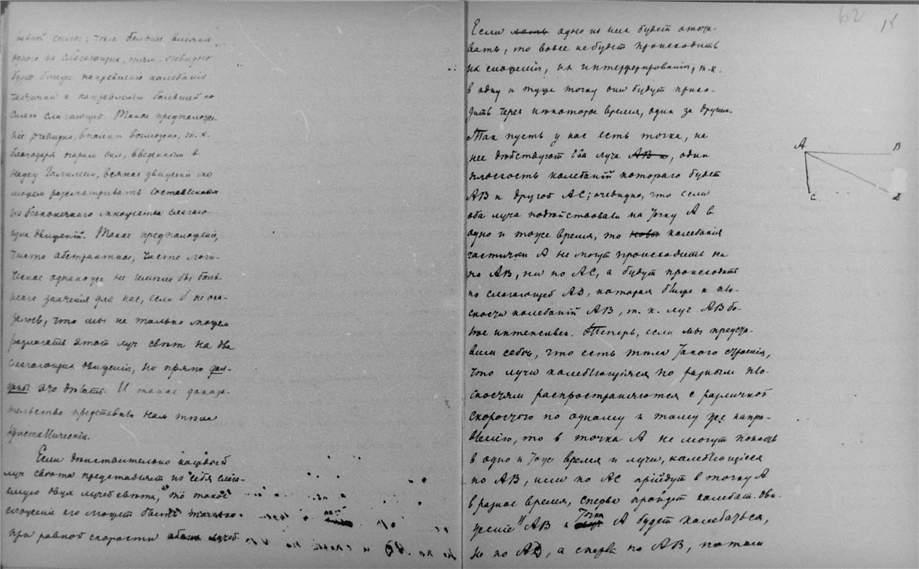 равной силы; чем больше влияние
одной из слагающих, тем, очевидно
будет ближе направление колебаний
частички к направлению большей по
силе слагающей. Такое предположе-
ние очевидно, вполне возможно, т. к.
благодаря теории сил, введенной в
науку Галилеем, всякое движение мы
можем рассматривать составленным
из бесконечного множества слагаю-
щих движений. Такое предположение,
чисто абстрактное, чисто логи-
ческое однако же не имело бы боль-
шого значения для нас, если б не ока-
залось, что мы не только можем
разложить этот луч света на два
слагающих движения, но прямо
это делать. И такое доказа-
тельство представляют нам тела
кристаллические.
Если действительно каждый
луч света представляет из себя слага-
емую двух лучей света, то такое
сложение его может быть только
при равной скорости обоих лучей
62
Если одно из них будет отста-
вать, то вовсе не будет происходить
ни сложения, ни интерферирования, т. к.
в одну и ту же точку они будут прихо-
дить через некоторое время, один за другим.
Так пусть у нас есть точка, на
нее действуют два луча АВ и, один
плоскость колебаний которого будет
АВ и другой АС; очевидно, что если
оба луча подействовали на точку А в
одно и тоже время, то колебания
частички А не могут происходить ни
по АВ, ни по АС, а будут происходить
по слагающей AD, которая ближе к пло-
скости колебаний АВ, т. к. луч АВ бо-
лее интенсивен. Теперь, если мы предста-
вим себе, что есть тела такого строения,
что лучи колеблющиеся по разным пло-
скостям распространяются с различной
скоростью по одному и тому же напра-
влению, то в точку А не могут попасть
в одно и тоже время и лучи, колеблющиеся
по АВ, или по АС прийдут в точку А
в разное время, сперва пройдет колебат. дви-
жение АВ и точка А будет колебаться,
не по AD, а сперва по АВ, потом
A B
C D